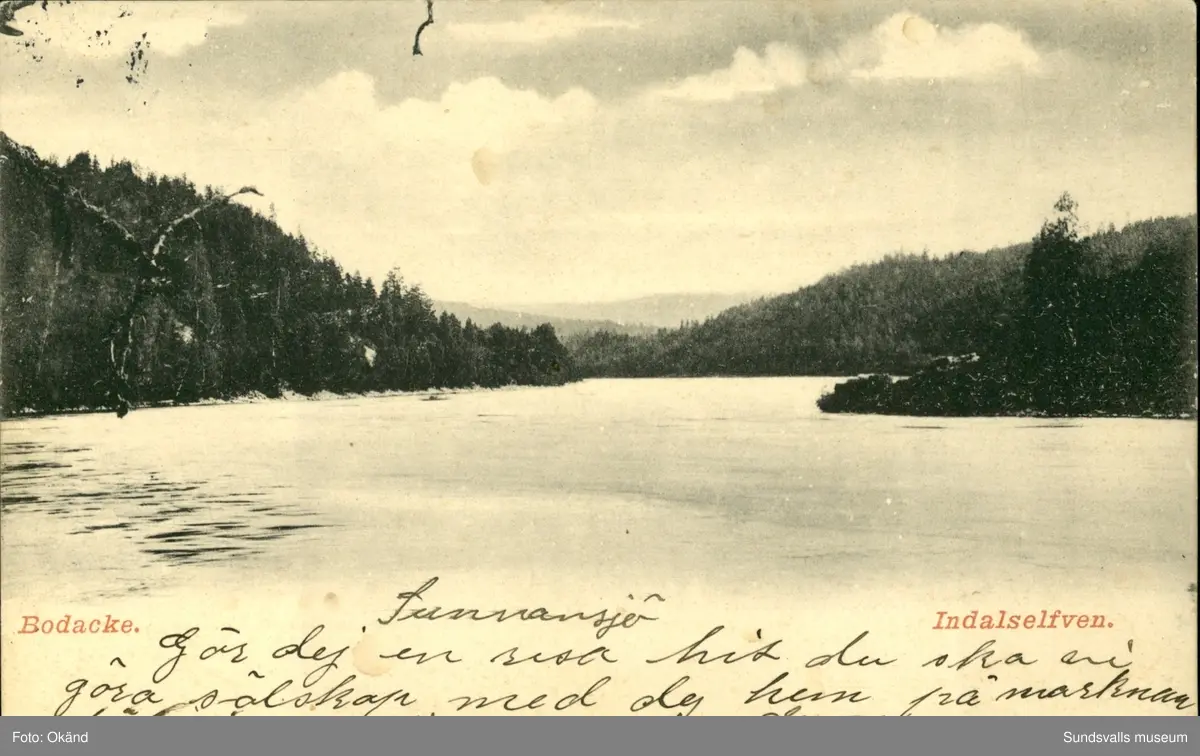 Sunnansjö
Bodacke.
Indalselfven.
Gör dej en resa hit du ska vi
göra sälskap med dej hem på marknan
Foto: Okänd
Sundsvalls museum